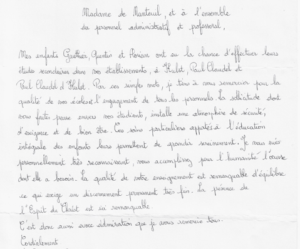 Madame de Nanteuil, et à l'ensemble
du personnel administratif et professoral,
Mes enfants Gauthier, Quentin et Florian ont eu la chance d'effectuer leurs
études secondaires dans vos établissements, d'Hulst, Paul Claudel et
Paul Claudel d'Hulst. Par ces simples mots, je tiens à vous remercier pour la
qualité de vos écoles et l'engagement de tous les personnels. La sollicitude dont
vous faites preuve envers vos étudiants, installe une atmosphère de sécurité,
d'exigence et de bien être. Ces soins particuliers apportés à l'éducation
intégrale des enfants leur permettent de grandir sereinement. Je vous suis
personnellement très reconnaissant, vous accomplissez pour l'humanité l'œuvre
dont elle a besoin. La qualité de votre enseignement est remarquable d'équilibre
ce qui exige un discernement permanent très fin. La présence de
l'Esprit du Christ est si remarquable
C'est donc ainsi avec admiration que je vous remercie tous.
Cordialement